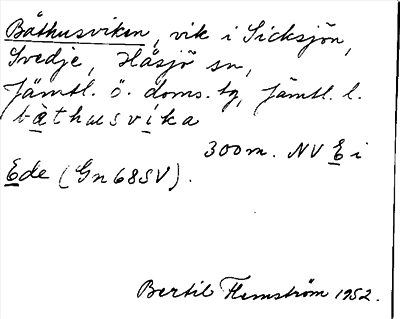 Båthusviken, vik i Sicksjön,
Svedje, Håsjö sn,
Jämtl. ö. doms. tg, Jämtl. l.
bàthusvíka
300m. NV E i
Ede (Gn 68SV).
Bertil Flemström 1952.